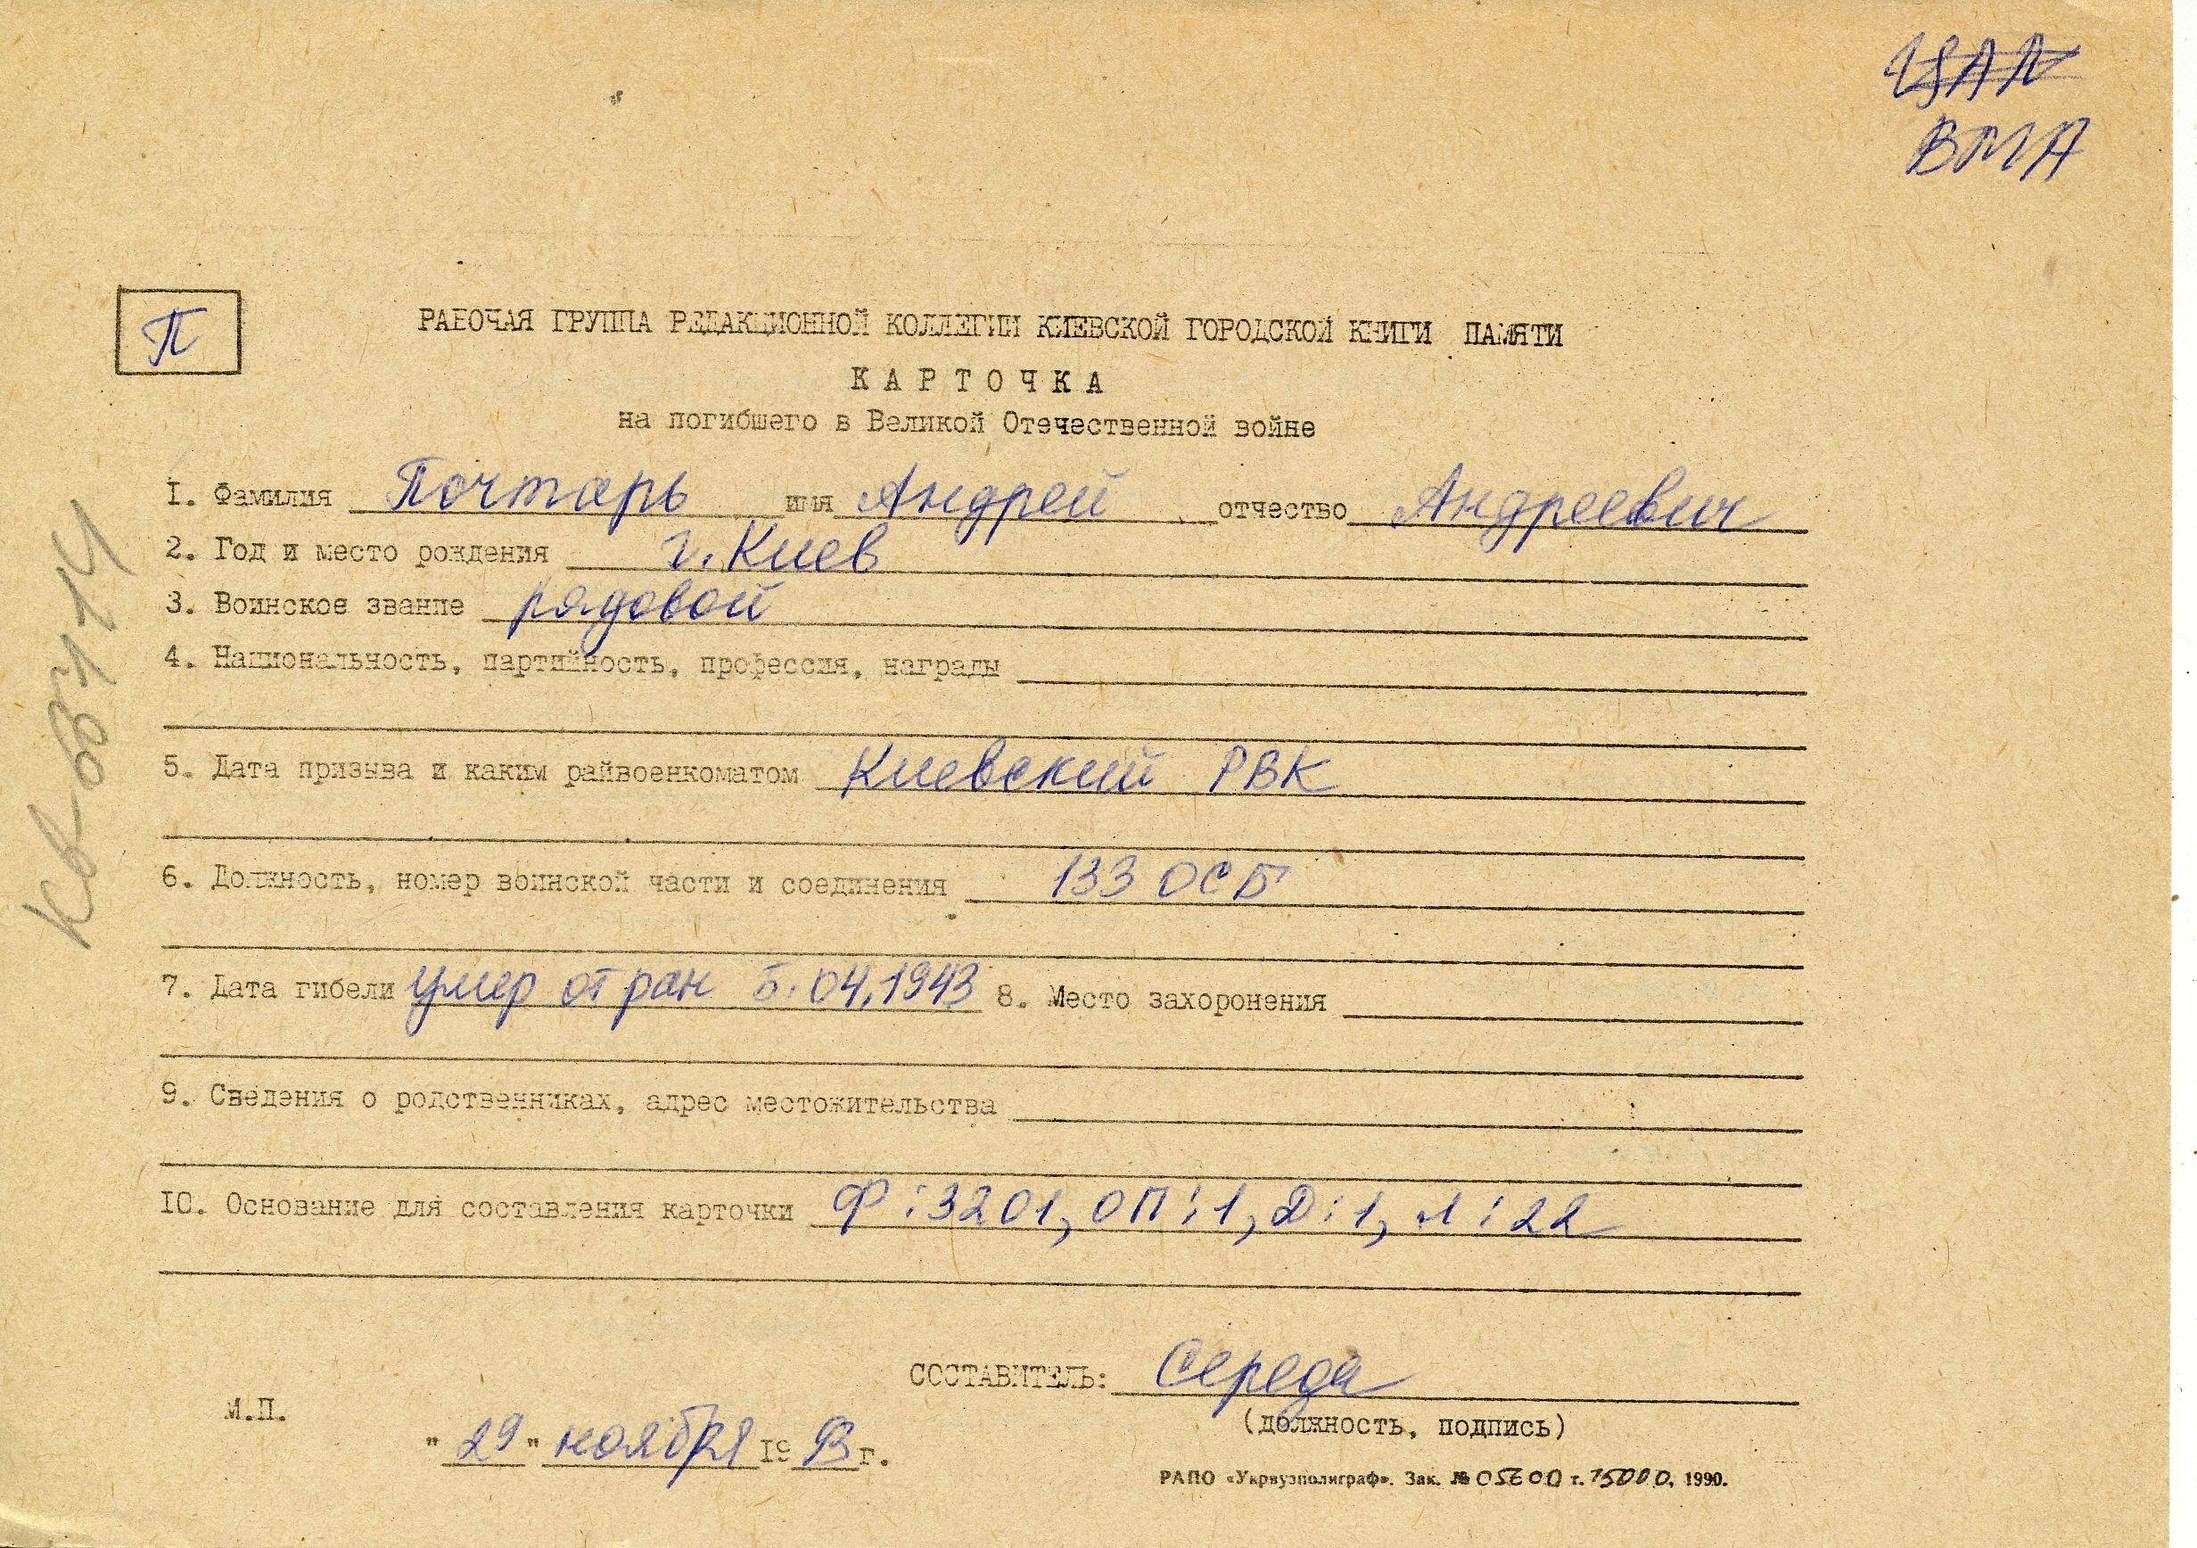 ВМА
П
РАБОЧАЯ ГРУППА РЕДАКЦИОННОЙ КОЛЛЕГИИ КИЕВСКОЙ ГОРОДСКОЙ КНИГИ ПАМЯТИ
КАРТОЧКА
на погибшего в Великой Отечественной войне
I. Фамилия Почтарь имя Андрей отчество Андреевич
2. Год и место рождения г. Киев
3. Воинское звание рядовой
4. Национальность, партийность, профессия, награды
5. Дата призыва и каким райвоенкоматом Киевский РВК
6. Должность, номер воинской части и соединения 133 ОСБ
7. Дата гибели умер от ран 5.04.1943 8. Место захоронения
9. Сведения о родственниках, адрес местожительства
IO. Основание для составления карточки Ф:3201, ОП:1, Д:1, л:22
СОСТАВИТЕЛЬ: Середа
(должность, подпись)
М.П.
"29" ноября I993 г.
РАПО «Укрвузполиграф». Зак. № 05600 т. 15000, 1990.